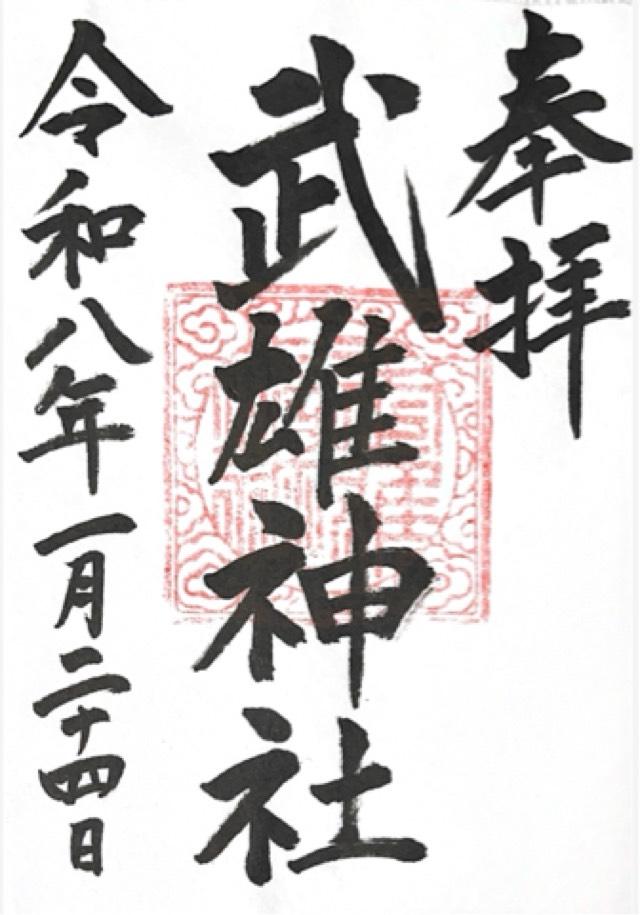 奉拝
武雄神社
令和八年一月二十四日